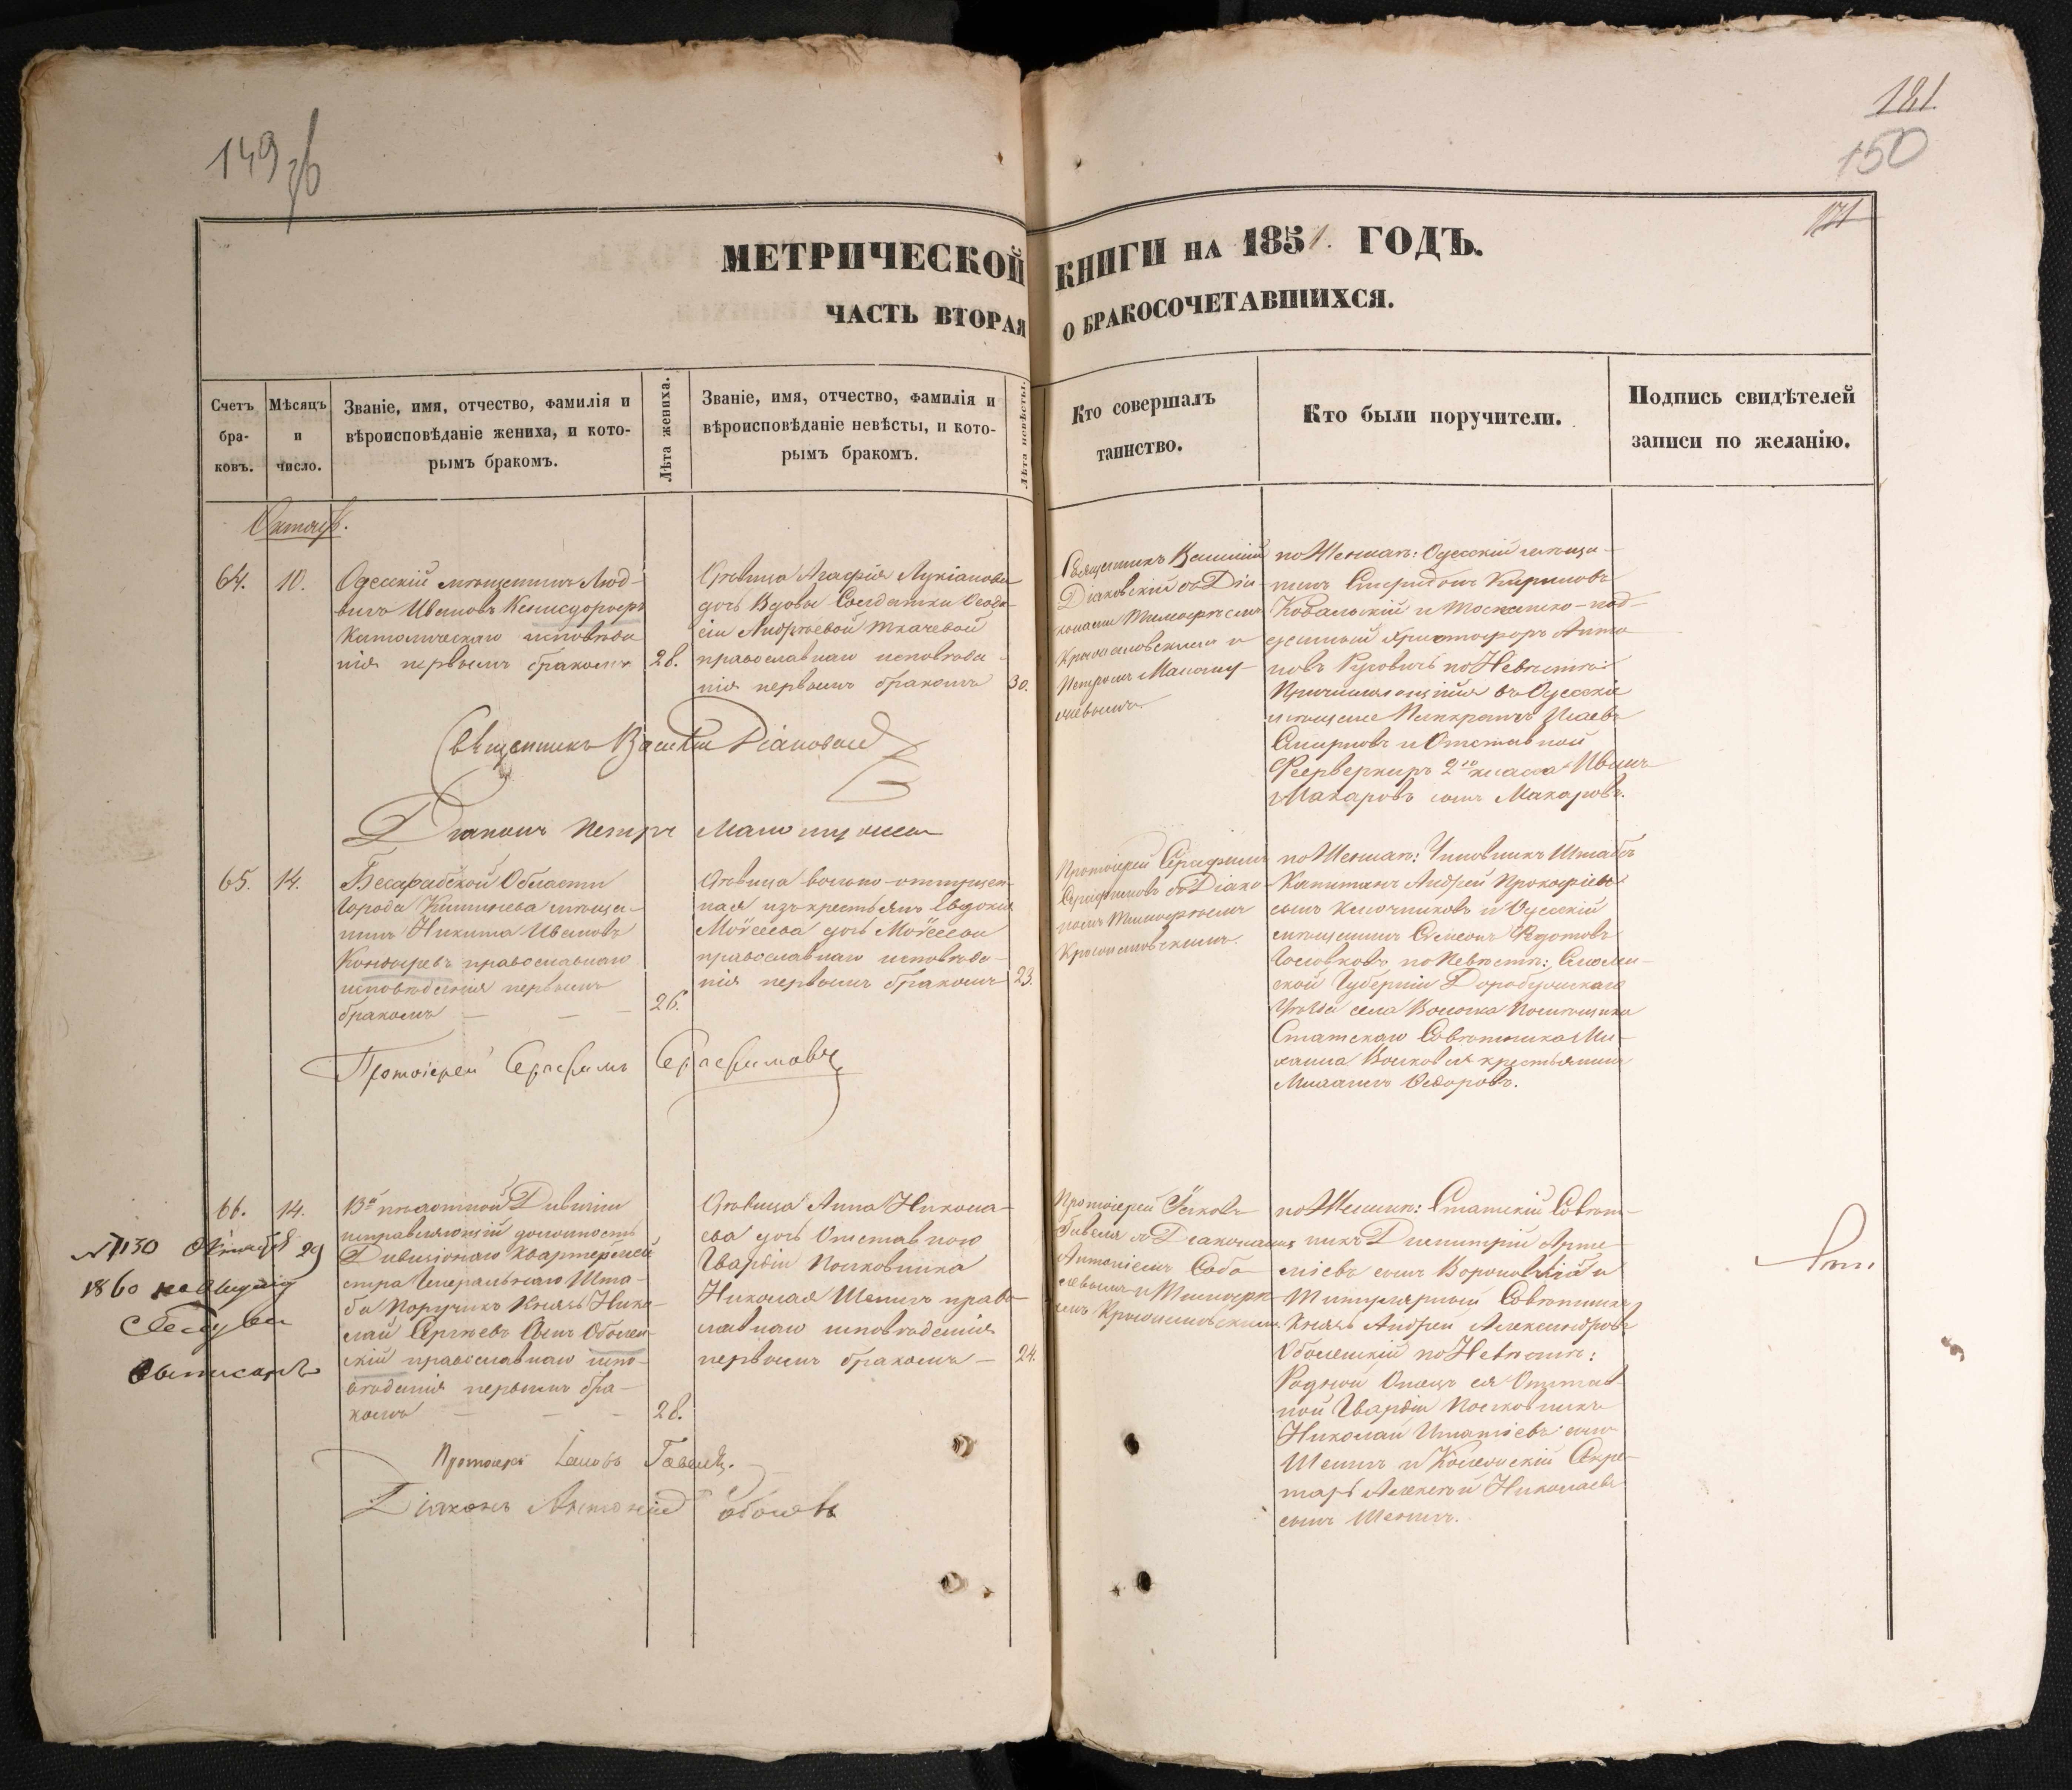 149 об
181.
150
171
МЕТРИЧЕСКОЙ КНИГИ НА 1851. ГОДЪ.
ЧАСТЬ ВТОРАЯ О БРАКОСОЧЕТАВШИХСЯ.
Счетъ бра-ковъ.
Мѣсяцъ и число.
Званіе, имя, отчество, фамилія и
вѣроисповѣданіе жениха, и кото-
рымъ бракомъ.
Лѣта жениха.
Званіе, имя, отчество, фамилія и
вѣроисповѣданіе невѣсты, и кото-
рымъ бракомъ.
Лѣта невѣсты.
Кто совершалъ
таинство.
Кто были поручители.
Подпись свидѣтелей
записи по желанію.
Октябр.
64.
10.
Одесскій мѣщанинъ Люд-
вигъ Ивановъ
Католическаго исповѣда
нія первымъ бракомъ
28.
Дѣвица Агафія Лукіанова
дочь Вдовы Солдатки Ѳеодо-
сіи Андреевой Ткачевой
православнаго исповѣда-
нія первымъ бракомъ
30.
Священникъ Василій
Діаковскій съ Діа
конами Тимофеемъ
Крыжановскимъ и
Петромъ
по Женихѣ: Одесскій мѣща-
нинъ Спиридонъ Кириловъ
Ковальскій и
Христофоръ Анто
новъ по Невѣстѣ:
въ Одесскіе
мѣщане Панкратъ Исаевъ
Смирновъ и Отставной
Феерверкеръ 2го класса Иванъ
Макаровъ сынъ Макаровъ.
Священникъ Василій Діаковскій
Діаконъ Петръ
65.
14.
Бесарабской Области
Города Кишинева мѣща-
нинъ Никита Ивановъ
Кондыревъ православнаго
исповѣданія первымъ
бракомъ
26.
Дѣвица вольно-отпущен-
ная изъ крестьянъ Евдокія
Моѵсеева дочь Моѵсеева
православнаго исповѣда-
нія первымъ бракомъ
23.
Протоіерей Серафимъ
Серафимовъ съ Діако-
номъ Тимофеемъ
Крыжановскимъ.
по Женихѣ: Чиновникъ Штабсъ
Капитанъ Андрей Прокофіевъ
сынъ Ключниковъ и Одесскій
мѣщанинъ Симеонъ Ѳедотовъ
по Невѣстѣ: Смолен-
ской Губерніи Дорогобужскаго
Уѣзда села Волочка Помѣщика
Статскаго Совѣтника Ми-
хаила крестьянинъ
Ѳедоровъ.
Протоіерей Серафимъ Серафимовъ
66.
14.
13й пѣхотной Дивизіи
исправляющій должность
Дивизіоннаго Квартермей
стра Генеральнаго Шта-
ба Поручикъ Князь Нико-
лай Сергѣевъ Сынъ Оболен-
скій православнаго испо-
вѣданія первымъ бра-
комъ
28.
Дѣвица Анна Никола-
ева дочь Отставнаго
Гвардіи Полковника
Николая Шенинъ право-
славнаго исповѣданія
первымъ бракомъ
24.
Протоіерей Іаковъ
Гавелъ съ Діаконами
Антоніемъ Собо
левымъ и Тимофе
емъ Крыжановскимъ
по Женихѣ: Статскій Совѣт-
никъ Димитрій Арте
міевъ сынъ и
Титулярный Совѣтникъ
Князь Андрей Александровъ
Оболенскій по Невѣстѣ:
Родной Отецъ ея Отстав-
ной Гвардіи Полковникъ
Николай Игнатіевъ сынъ
Шенинъ и Коллежскій Секре-
тарь Алексѣй Николаевъ
сынъ Шенинъ.
Протоіерей Іаковъ Гавелъ.
Діаконъ Антоній Соболевъ
№ 1130 Октября 29
1860